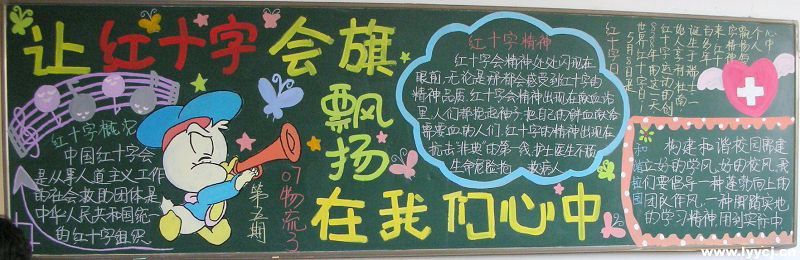 让红十字会旗
飘扬
在我们心中
红十字概况
中国红十字会
是从事人道主义工作
的社会救助团体是
中华人民共和国统一
的红十字组织
第五期
07物流3
红十字精神
红十字会精神处处闪现在
眼前,无论是
精神品质,红十字会精神出现在献血站
里,人们都挽起袖子,把自己的鲜血献给
需要血的人们,红十字的精神出现在
抗击"非典"的第一线,护士医生不顾
生命危险抢救病人
世界红十字日
5月8日是
红十字日
和谐校园
构建和谐校园需建
立好的学风,好的校风,我
们要倡导一种蓬勃向上的
团队作风,一种脚踏实地
的学习精神,用到实际中
www.lyycj.cn